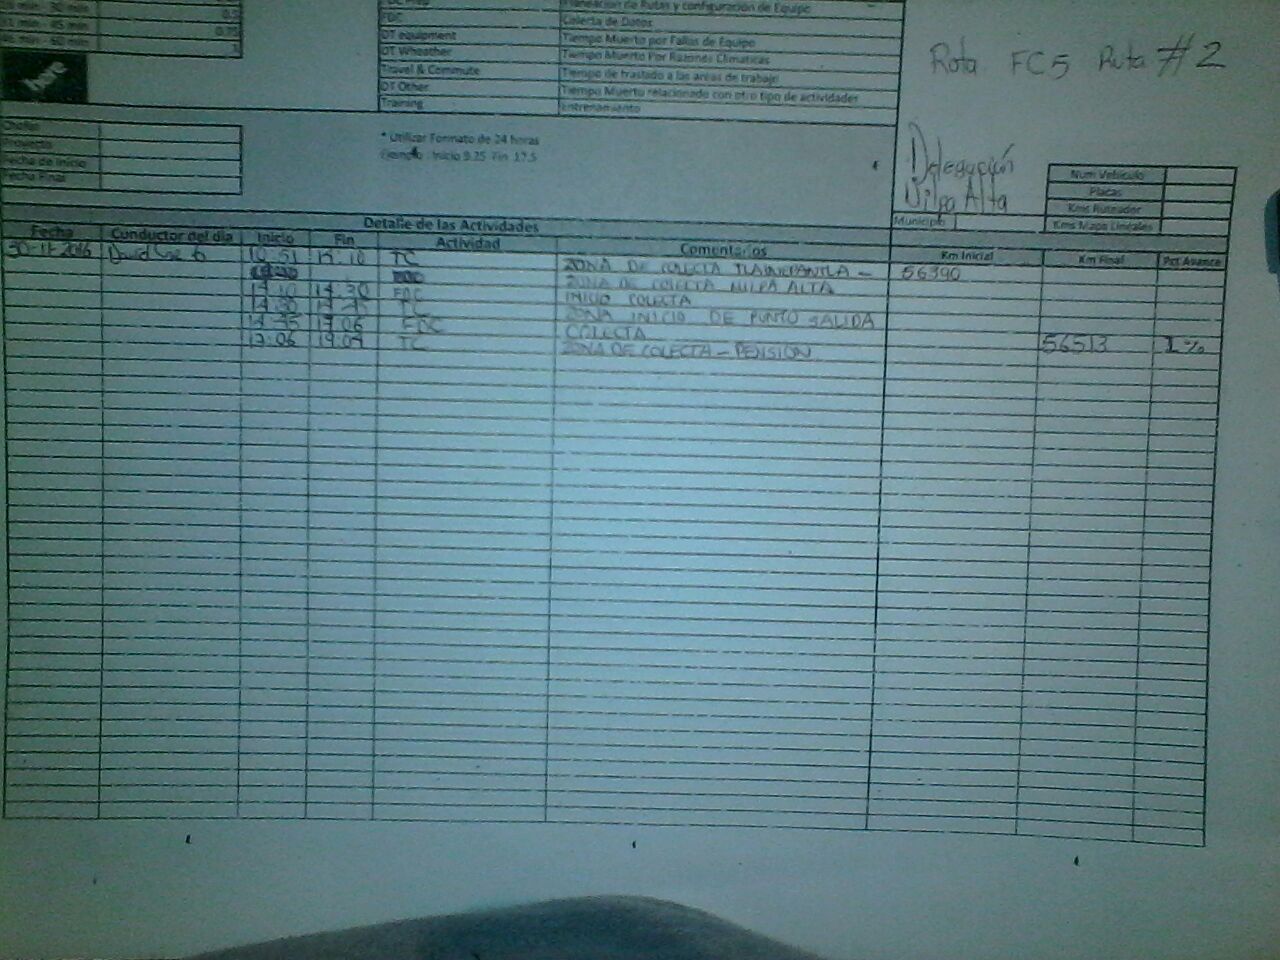 min - 30 min 0.5
31 min - 45 min 0.75
46 min - 60 min 1
Planeacion de Rutas y configuración de Equipo
FDC Colecta de Datos
DT equipment Tiempo Muerto por Fallas de Equipo
DT Wheather Tiempo Muerto Por Razones Climaticas
Travel & Commute Tiempo de traslado a las areas de trabajo
DT Other Tiempo Muerto relacionado con otro tipo de actividades
Training Entrenamiento
Rota FC5 Ruta #2
Chofer
Proyecto
Fecha de Inicio
Fecha Final
* Utilizar Formato de 24 horas
Ejemplo : Inicio 9.25 Fin 17.5
Delegación
Milpa Alta
Num Vehiculo
Placas
Kms Ruteador
Kms Mapa Lineales
Municipio
Detalle de las Actividades
Fecha Conductor del dia Inicio Fin Actividad Comentarios Km Inicial Km Final Pct Avance
30-11-2016 David 10:51 TC ZONA DE COLECTA TLALNEPANTLA - 56390
ZONA DE COLECTA MILPA ALTA
14:30 FDC INICIO COLECTA
TC ZONA INICIO DE PUNTO SALIDA
17:06 FDC COLECTA
17:06 19:09 TC ZONA DE COLECTA - PENSION 56513 1%